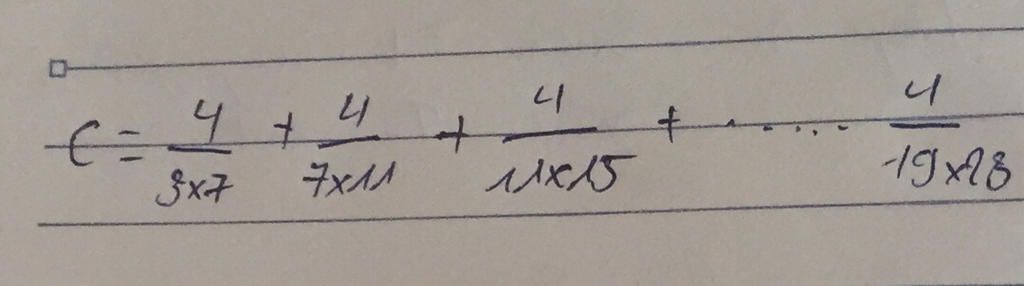 C = 4/3x7 + 4/7x11 + 4/11x15 + ...... 4/19x23